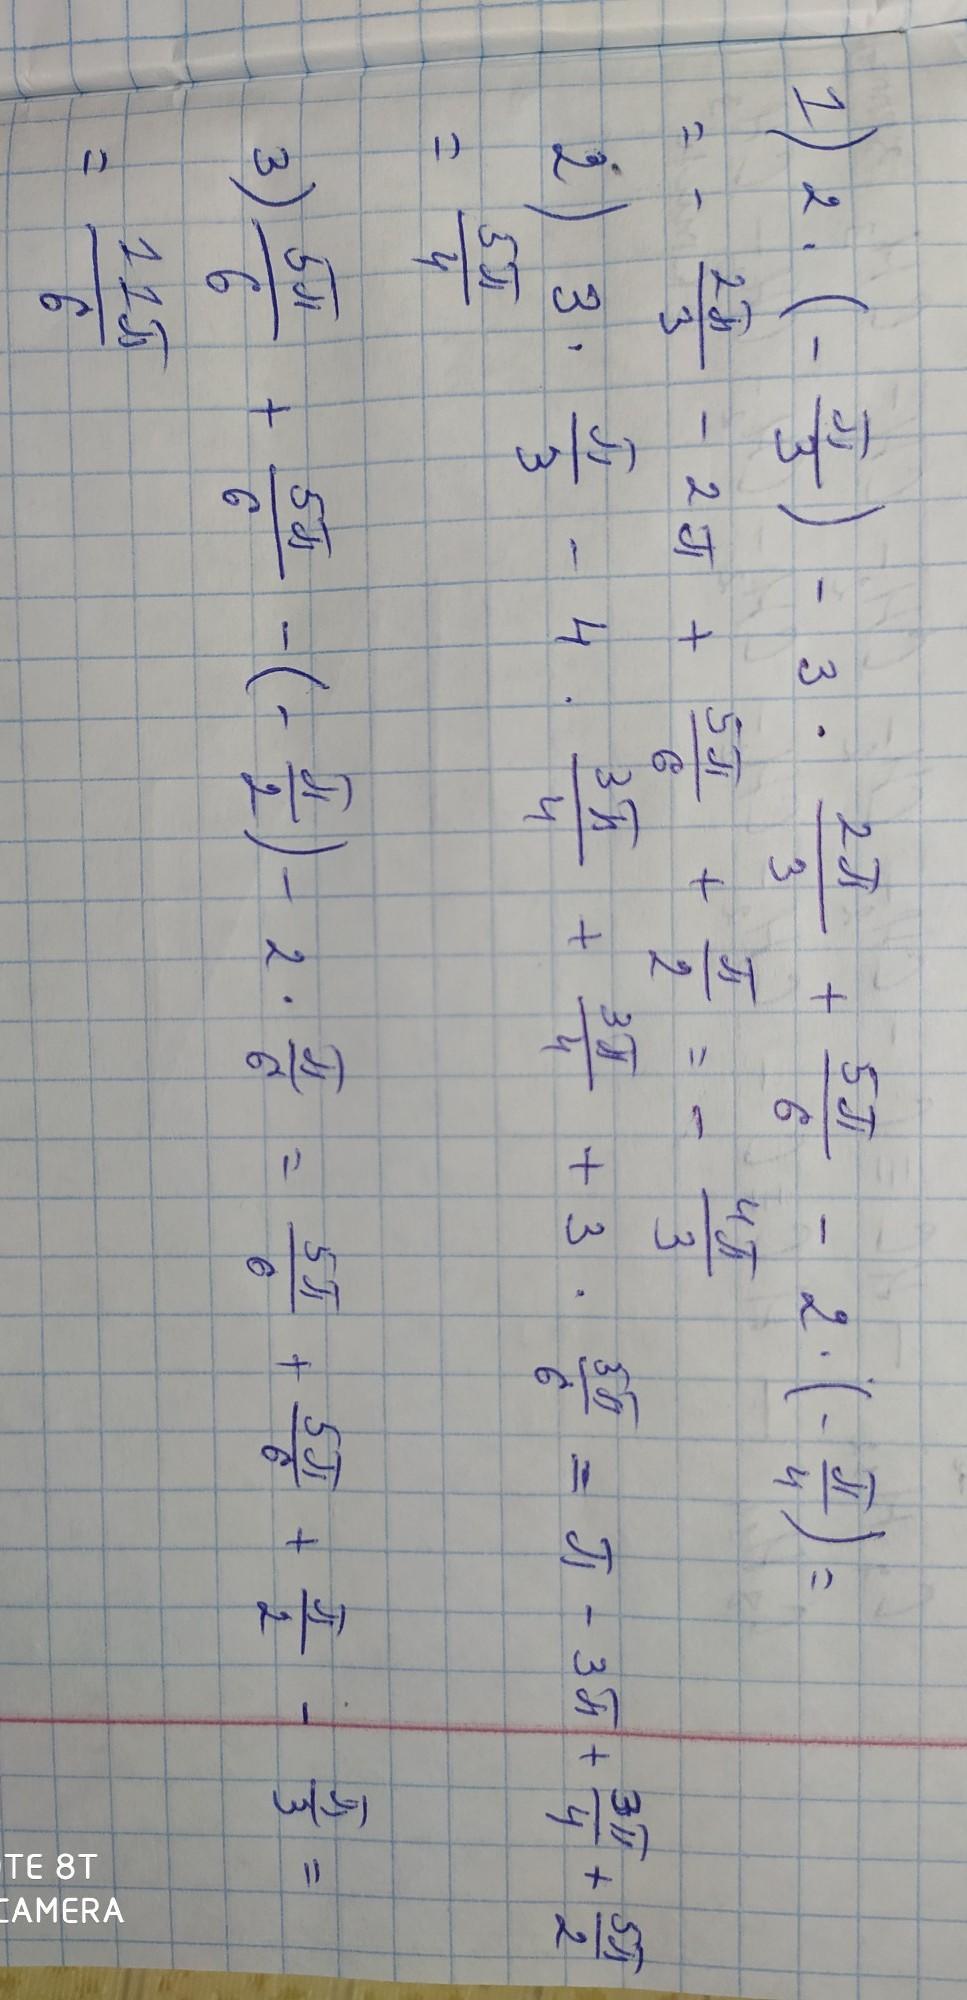 1) 2 · (- π/3) - 3 · 2π/3 + 5π/6 - 2 · (- π/4) =
= - 2π/3 - 2π + 5π/6 + π/2 = - 4π/3
2) 3 · π/3 - 4 · 3π/4 + 3π/4 + 3 · 5π/6 = π - 3π + 3π/4 + 5π/2
= 5π/4
3) 5π/6 + 5π/6 - (- π/2) - 2 · π/6 = 5π/6 + 5π/6 + π/2 - π/3 =
= 11π/6
TE 8T
CAMERA